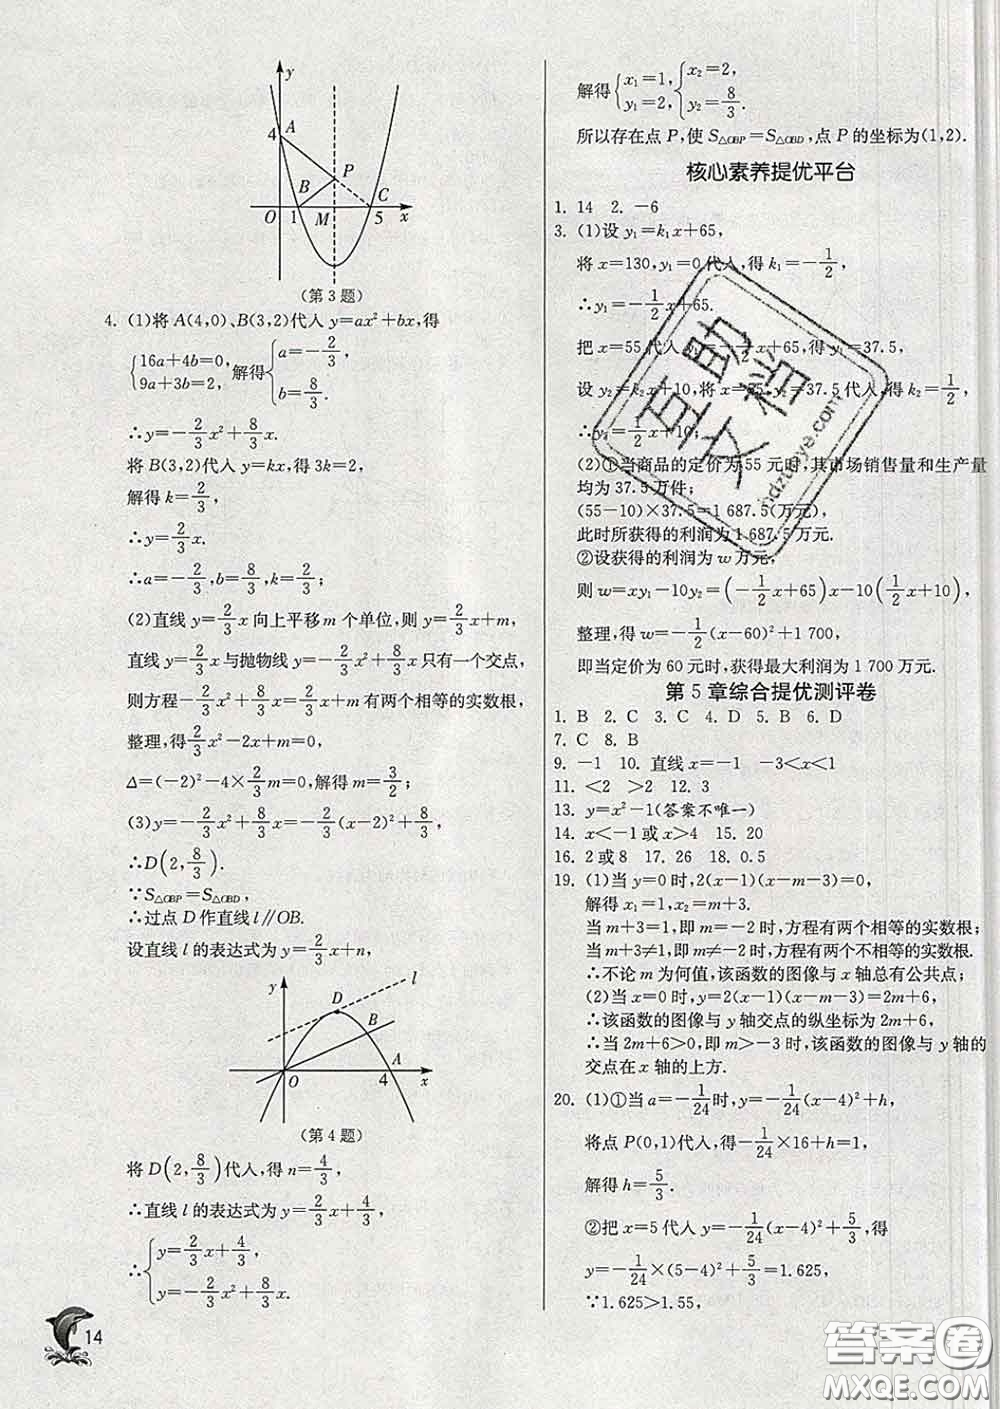 y
4
A
P
B
C
O
1
M
5
x
(第3题)
4. (1)将 A(4,0)、B(3,2)代入 y=ax²+bx,得
{16a+4b=0, 9a+3b=2, 解得{a=-2/3, b=8/3.
∴y=-2/3x²+8/3x.
将 B(3,2)代入 y=kx,得 3k=2,
解得 k=2/3,
∴y=2/3x.
∴a=-2/3,b=8/3,k=2/3;
(2)直线 y=2/3x 向上平移 m 个单位,则 y=2/3x+m,
直线 y=2/3x 与抛物线 y=-2/3x²+8/3x 只有一个交点,
则方程-2/3x²+8/3x=2/3x+m 有两个相等的实数根,
整理,得2/3x²-2x+m=0,
Δ=(-2)²-4×2/3m=0,解得 m=3/2;
(3)y=-2/3x²+8/3x=-2/3(x-2)²+8/3,
∴D(2,8/3).
∵S△OBP=S△OBD,
∴过点 D 作直线 l∥OB.
设直线 l 的表达式为 y=2/3x+n,
y
D
l
B
A
O
4
x
(第4题)
将 D(2,8/3)代入,得 n=4/3,
∴直线 l 的表达式为 y=2/3x+4/3,
∴{y=2/3x+4/3, y=-2/3x²+8/3x.
14
解得{x₁=1, y₁=2, {x₂=2, y₂=8/3.
所以存在点 P,使 S△OBP=S△OBD,点 P 的坐标为(1,2).
核心素养提优平台
1. 14 2. -6
3. (1)设 y₁=k₁x+65,
将 x=130,y₁=0 代入,得 k₁=-1/2,
∴y₁=-1/2x+65.
把 x=55 代入 y₁=-1/2x+65,得 y₁=37.5,
设 y₂=k₂x+10,将 x=55,y₂=37.5 代入,得 k₂=1/2,
∴y₂=1/2x+10;
(2)①当商品的定价为 55 元时,其市场销售量和生产量
均为 37.5 万件;
(55-10)×37.5=1 687.5(万元),
此时所获得的利润为 1 687.5 万元;
②设获得的利润为 w 万元,
则 w=xy₁-10y₂=(-1/2x+65)x-10(1/2x+10),
整理,得 w=-1/2(x-60)²+1 700,
即当定价为 60 元时,获得最大利润为 1 700 万元.
第 5 章综合提优测评卷
1. B 2. C 3. C 4. D 5. B 6. D
7. C 8. B
9. -1 10. 直线 x=-1 -3<x<1
11. <2 >2 12. 3
13. y=x²-1(答案不唯一)
14. x<-1 或 x>4 15. 20
16. 2 或 8 17. 26 18. 0.5
19. (1)当 y=0 时,2(x-1)(x-m-3)=0,
解得 x₁=1,x₂=m+3.
当 m+3=1,即 m=-2 时,方程有两个相等的实数根;
当 m+3≠1,即 m≠-2 时,方程有两个不相等的实数根.
∴不论 m 为何值,该函数的图像与 x 轴总有公共点;
(2)当 x=0 时,y=2(x-1)(x-m-3)=2m+6,
∴该函数的图像与 y 轴交点的纵坐标为 2m+6,
∴当 2m+6>0,即 m>-3 时,该函数的图像与 y 轴的
交点在 x 轴的上方.
20. (1)①当 a=-1/24时,y=-1/24(x-4)²+h,
将点 P(0,1)代入,得-1/24×16+h=1,
解得 h=5/3.
②把 x=5 代入 y=-1/24(x-4)²+5/3,得
y=-1/24×(5-4)²+5/3=1.625,
∵1.625>1.55,
互助文档
hdzuoye.com
答案圈
MXQE.COM